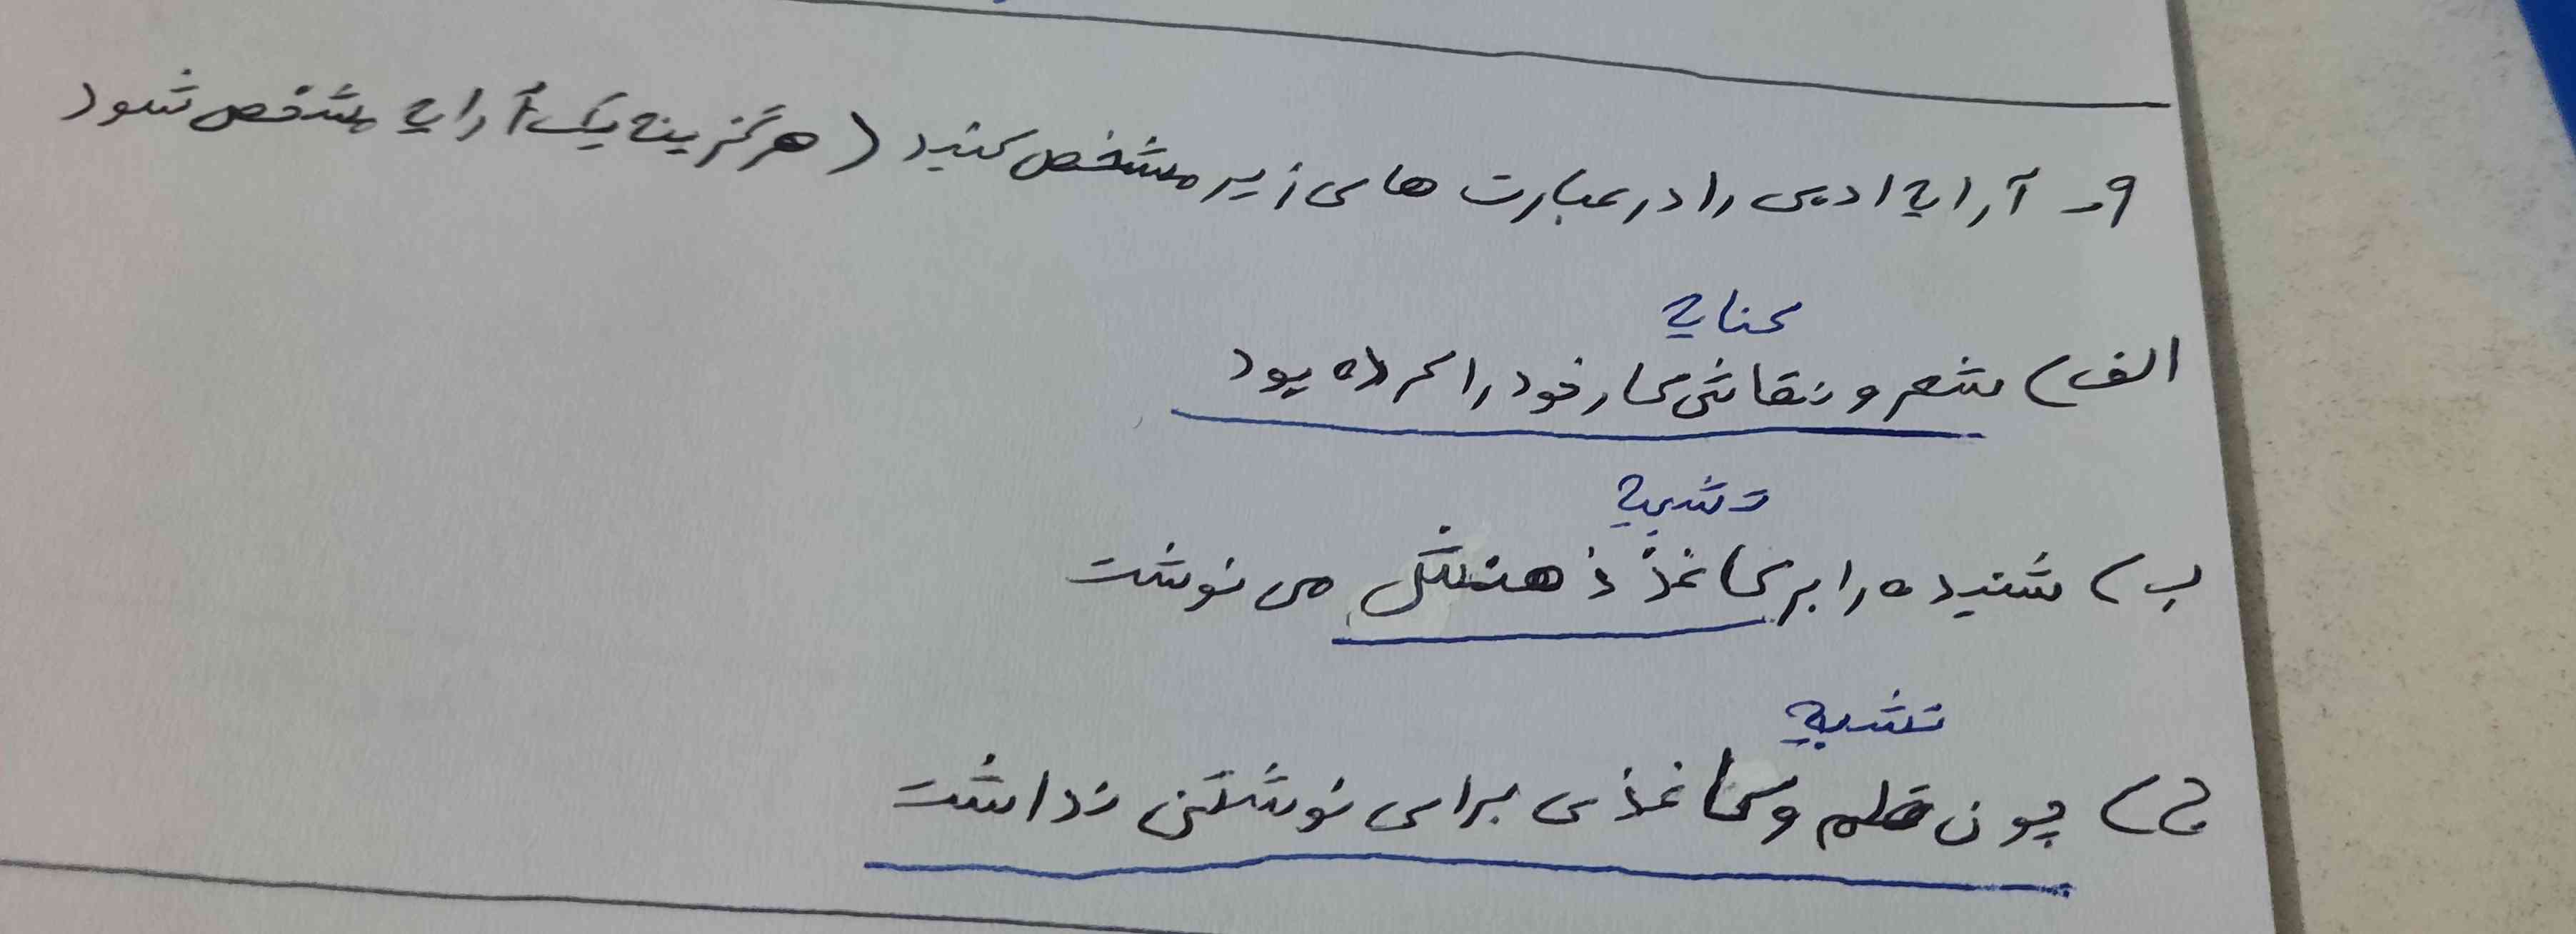 ۹- آرایه ادبی را در عبارت های زیر مشخص کنید (هر گزینه یک آرایه مشخص شود
کنایه
الف) شعر و نقاشی کار خود را کرده بود
تشبیه
ب) شنیده را بر کاغذ ذهنش می نوشت
تشبیه
ج) چون قلم و کاغذی برای نوشتن نداشت